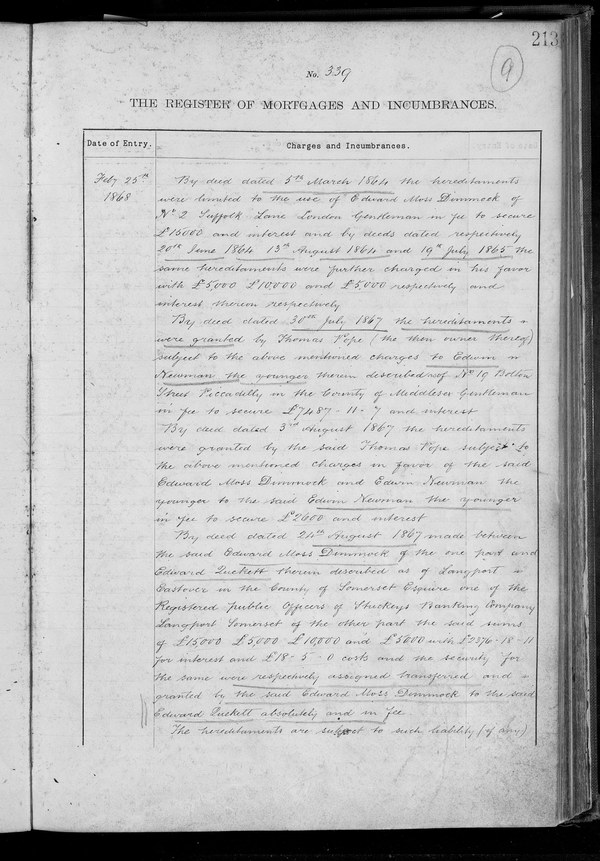 213
9
No. 339
THE REGISTER OF MORTGAGES AND INCUMBRANCES.
Date of Entry.
Charges and Incumbrances.
Feby 25th
1868
By deed dated 5th March 1864 the hereditaments
were limited to the use of Edward Moss Dimmock of
No 2 Suffolk Lane London Gentleman in fee to secure
£15000 and interest and by deeds dated respectively
20th June 1864 13th August 1864 and 19th July 1865 the
same hereditaments were further charged in his favor
with £5,000 £10,000 and £5,000 respectively and
interest thereon respectively
By deed dated 30th July 1867 the hereditaments
were granted by Thomas Pope (the then owner thereof)
subject to the above mentioned charges to Edwin
Newman the younger therein described as of No 19 Bolton
Street Piccadilly in the County of Middlesex Gentleman
in fee to secure £7487-11-7 and interest
By deed dated 3rd August 1867 the hereditaments
were granted by the said Thomas Pope subject to
the above mentioned charges in favor of the said
Edward Moss Dimmock and Edwin Newman the
younger to the said Edwin Newman the younger
in fee to secure £2600 and interest
By deed dated 24th August 1867 made between
the said Edward Moss Dimmock of the one part and
Edward Quekett therein described as of Langport
Eastover in the County of Somerset Esquire one of the
Registered public Officers of Stuckeys Banking Company
Langport Somerset of the other part the said sums
of £15000 £5,000 £10,000 and £5000 with £2376-18-11
for interest and £18-5-0 costs and the security for
the same were respectively assigned transferred and
granted by the said Edward Moss Dimmock to the said
Edward Quekett absolutely and in fee
The hereditaments are subject to such liability (if any)